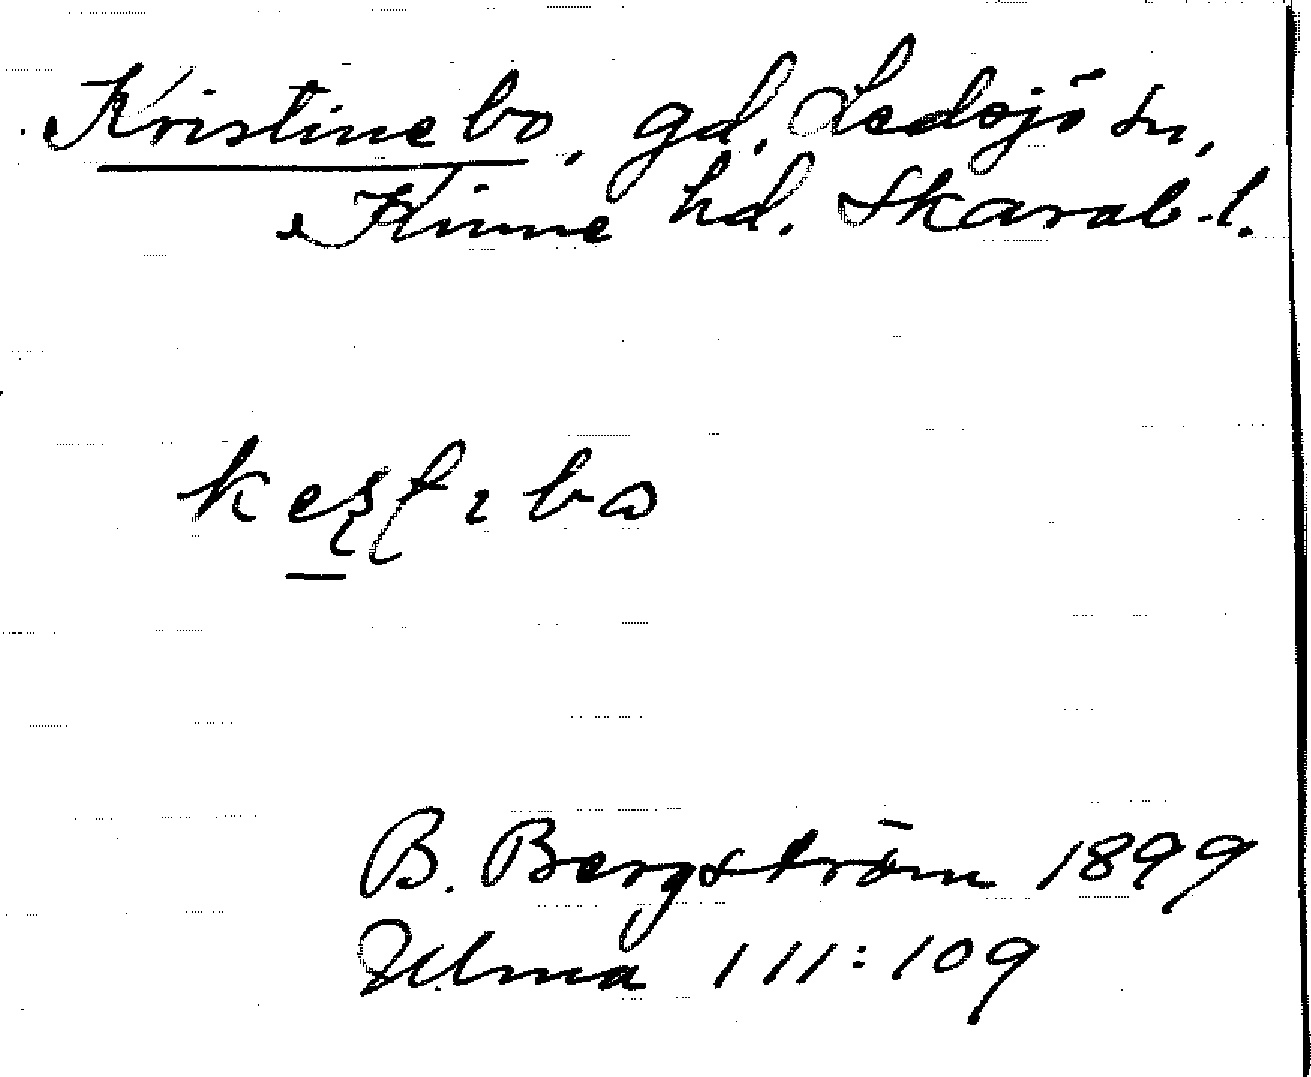 Kristinebo, gd. Ledsjö sn,
Kinne hd. Skarab. l.
B. Bergström 1899
Ulma 111:109